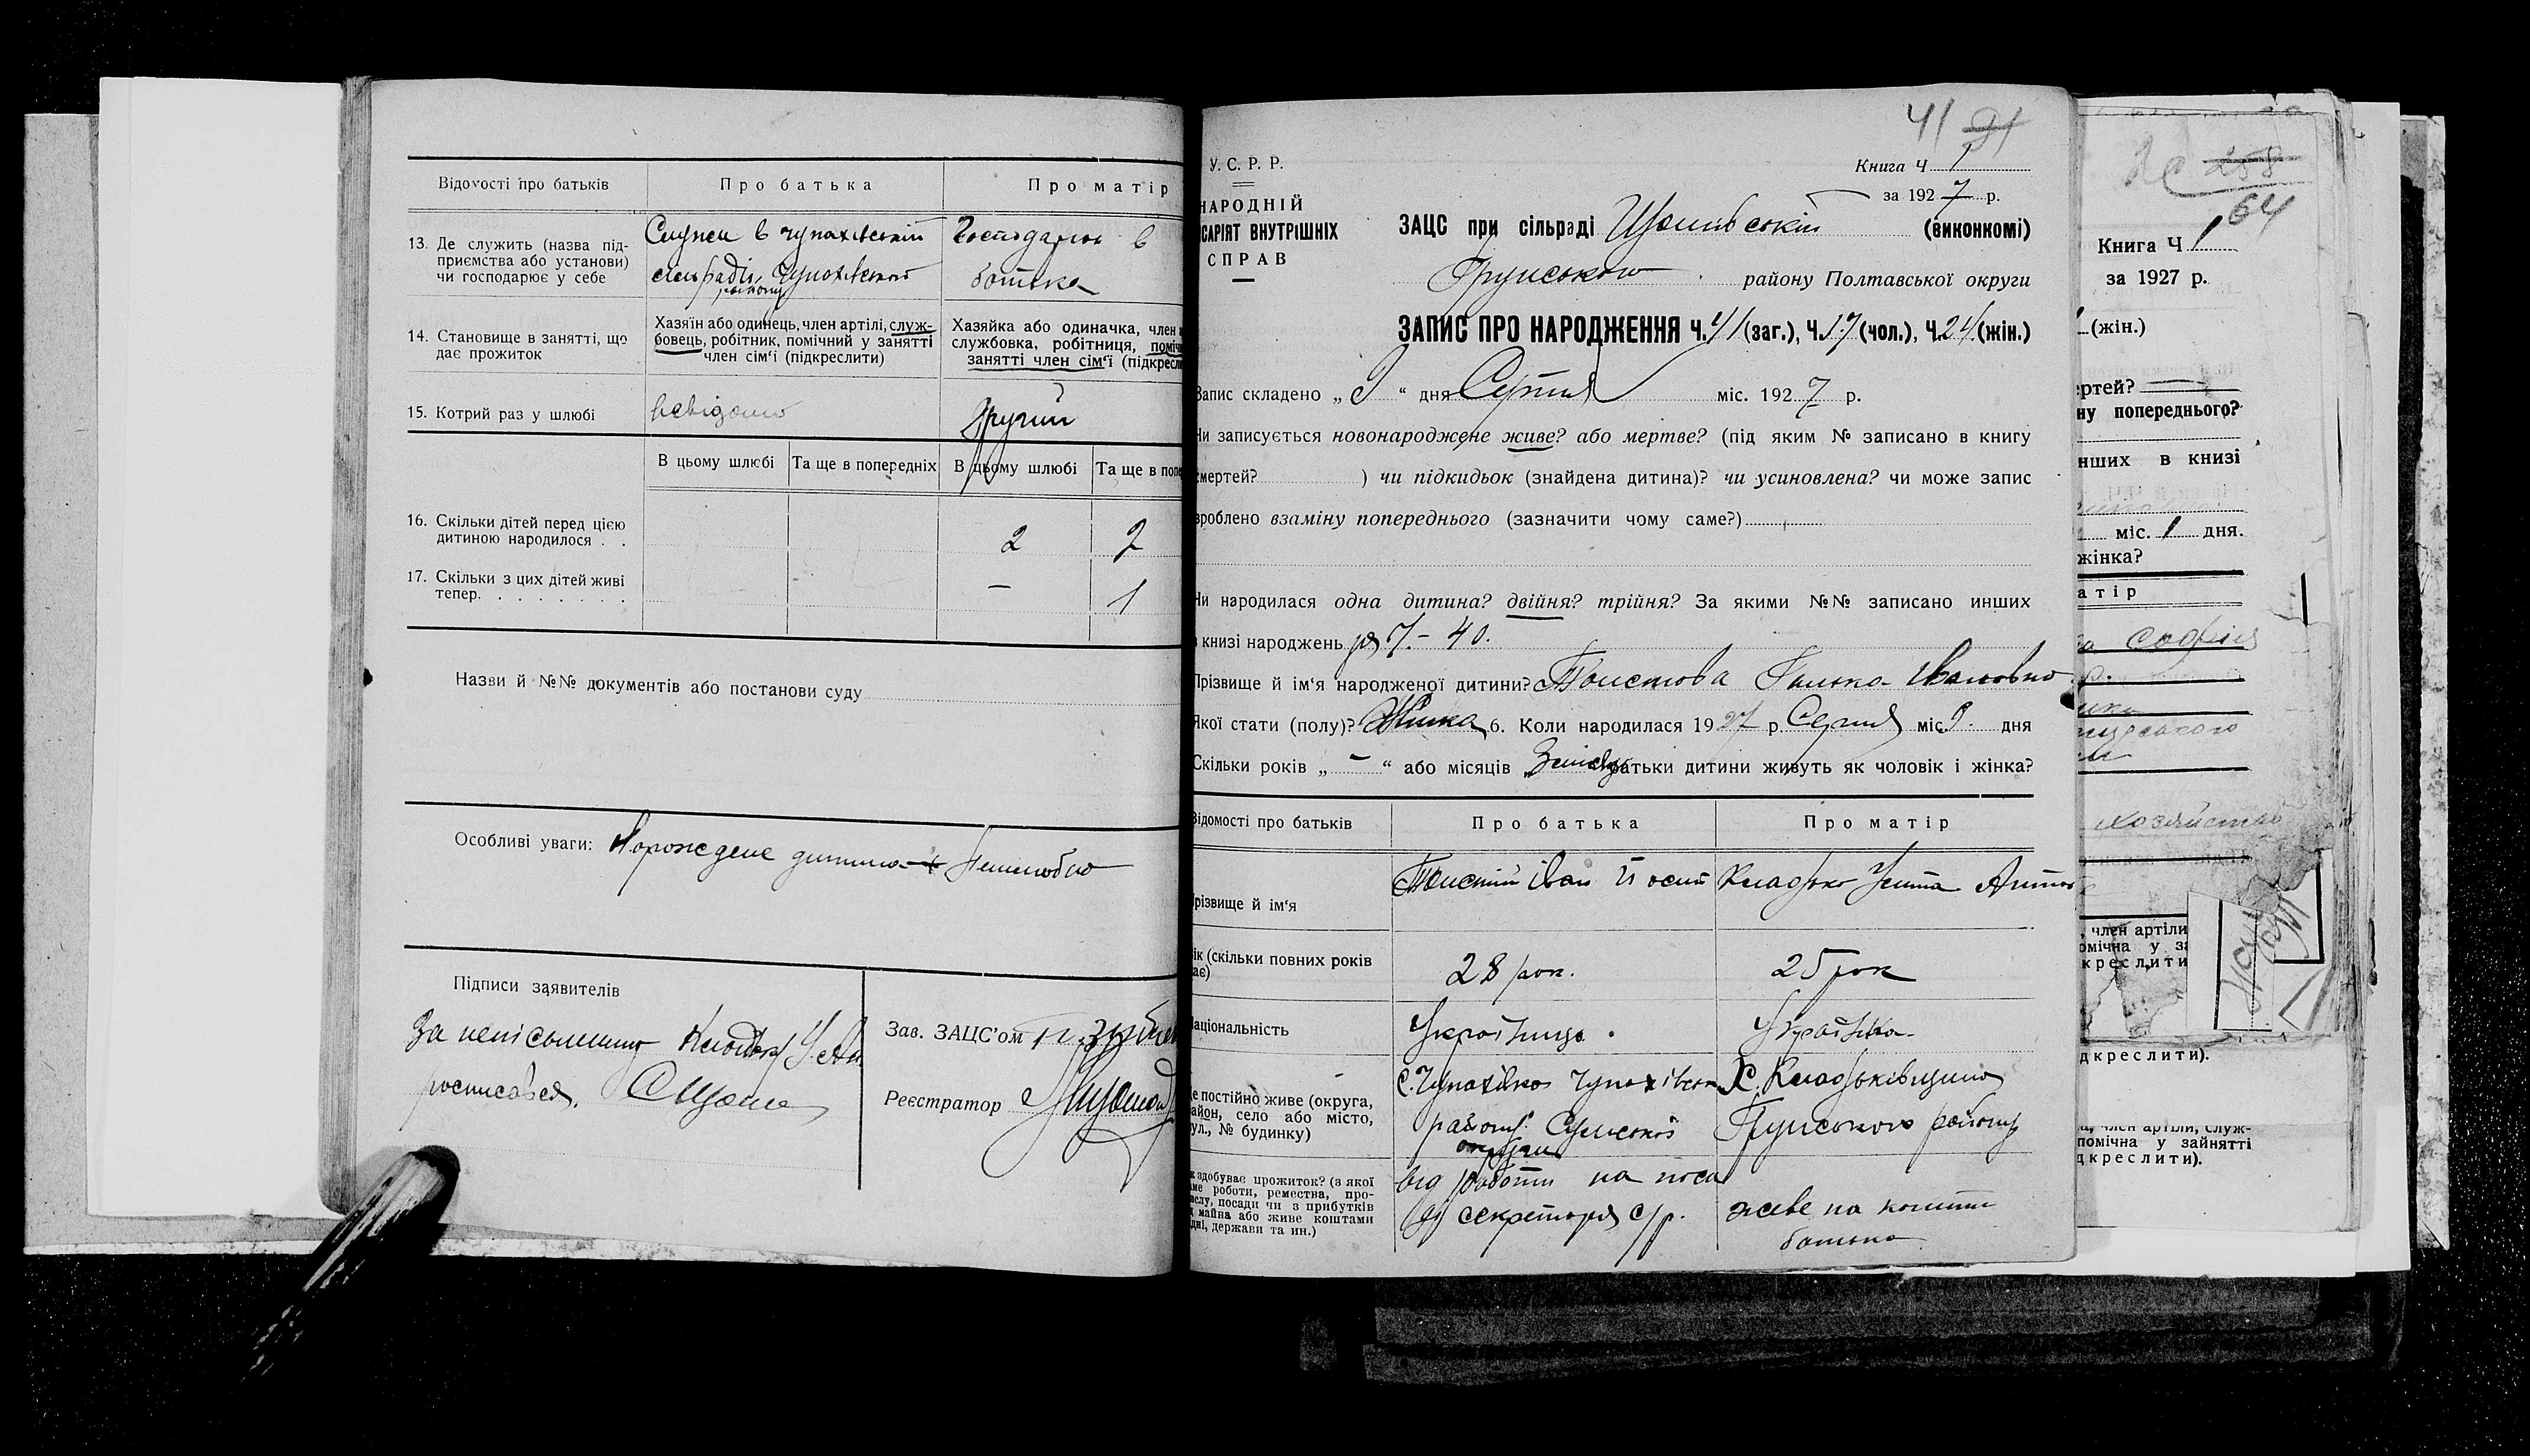 Відомості про батьків
Про батька
Про матір
13. Де служить (назва під-
приємства або установи)
чи господарює у себе
Служи в чупахівській
сельраді, Чупахівського
району
Господарює в
батька
14. Становище в занятті, що
дає прожиток
Хазяїн або одинець, член артілі, служ-
бовець, робітник, помічний у занятті
член сім'ї (підкреслити)
Хазяйка або одиначка, член
службовка, робітниця, поміч
занятті член сім'ї (підкресл
15. Котрий раз у шлюбі
невідомо
Другий
В цьому шлюбі
Та ще в попередніх
В цьому шлюбі
Та ще в поп
16. Скільки дітей перед цією
дитиною народилося . .
2
2
17. Скільки з цих дітей живі
тепер. . . . . . . .
—
1
Назви й №№ документів або постанови суду
Особливі уваги: Нарождене дитина
Підписи заявителів
За неписьменну Кладько У. Ан.
росписався.
Зав. ЗАЦС'ом
Реєстратор
41 91
У. С. Р. Р.
НАРОДНІЙ
САРІЯТ ВНУТРІШНІХ
СПРАВ
Книга Ч 1
за 1927 р.
ЗАЦС при сільраді (виконкомі)
Грунського району Полтавської округи
ЗАПИС ПРО НАРОДЖЕННЯ Ч. 41 (заг.), Ч. 17 (чол.), Ч. 24 (жін.)
Запис складено „ 9 “ дня Серпня міс. 1927 р.
Чи записується новонароджене живе? або мертве? (під яким № записано в книгу
смертей? ) чи підкидьок (знайдена дитина)? чи усиновлена? чи може запис
зроблено взаміну попереднього (зазначити чому саме?)
Чи народилася одна дитина? двійня? трійня? За якими №№ записано инших
в книзі народжень № 40.
Прізвище й ім'я народженої дитини? Толстова Галька Івановна
Якої стати (полу)? Жінка 6. Коли народилася 1927 р. Серпня міс. 9. дня
Скільки років „ — “ або місяців батьки дитини живуть як чоловік і жінка?
Відомості про батьків
Про батька
Про матір
прізвище й ім'я
Толстий Іван Йосип
Кладько Устя Антон
вік (скільки повних років
має)
28 рок.
25 рок
Національність
Українець.
Українка
Де постійно живе (округа,
район, село або місто,
вул., № будинку)
С. Чупахівка Чупахівськ
району Сумської
округи
Х. Кладьківщина
Грунського району
Як здобуває прожиток? (з якої
саме роботи, ремества, про-
мислу, посади чи з прибутків
з майна або живе коштами
рідні, держави та ин.)
від роботи на поса
ді секретаря с/р.
живе на кошти
батька
258
64
Книга Ч 1
за 1927 р.
(жін.)
ертей?
ну попереднього?
нших в книзі
міс. 1 дня.
жінка?
атір
Софія
хозяйство
, член артіли
омічна у за
креслити
дкреслити).
а, член артіли, служ-
помічна у зайнятті
дкреслити).